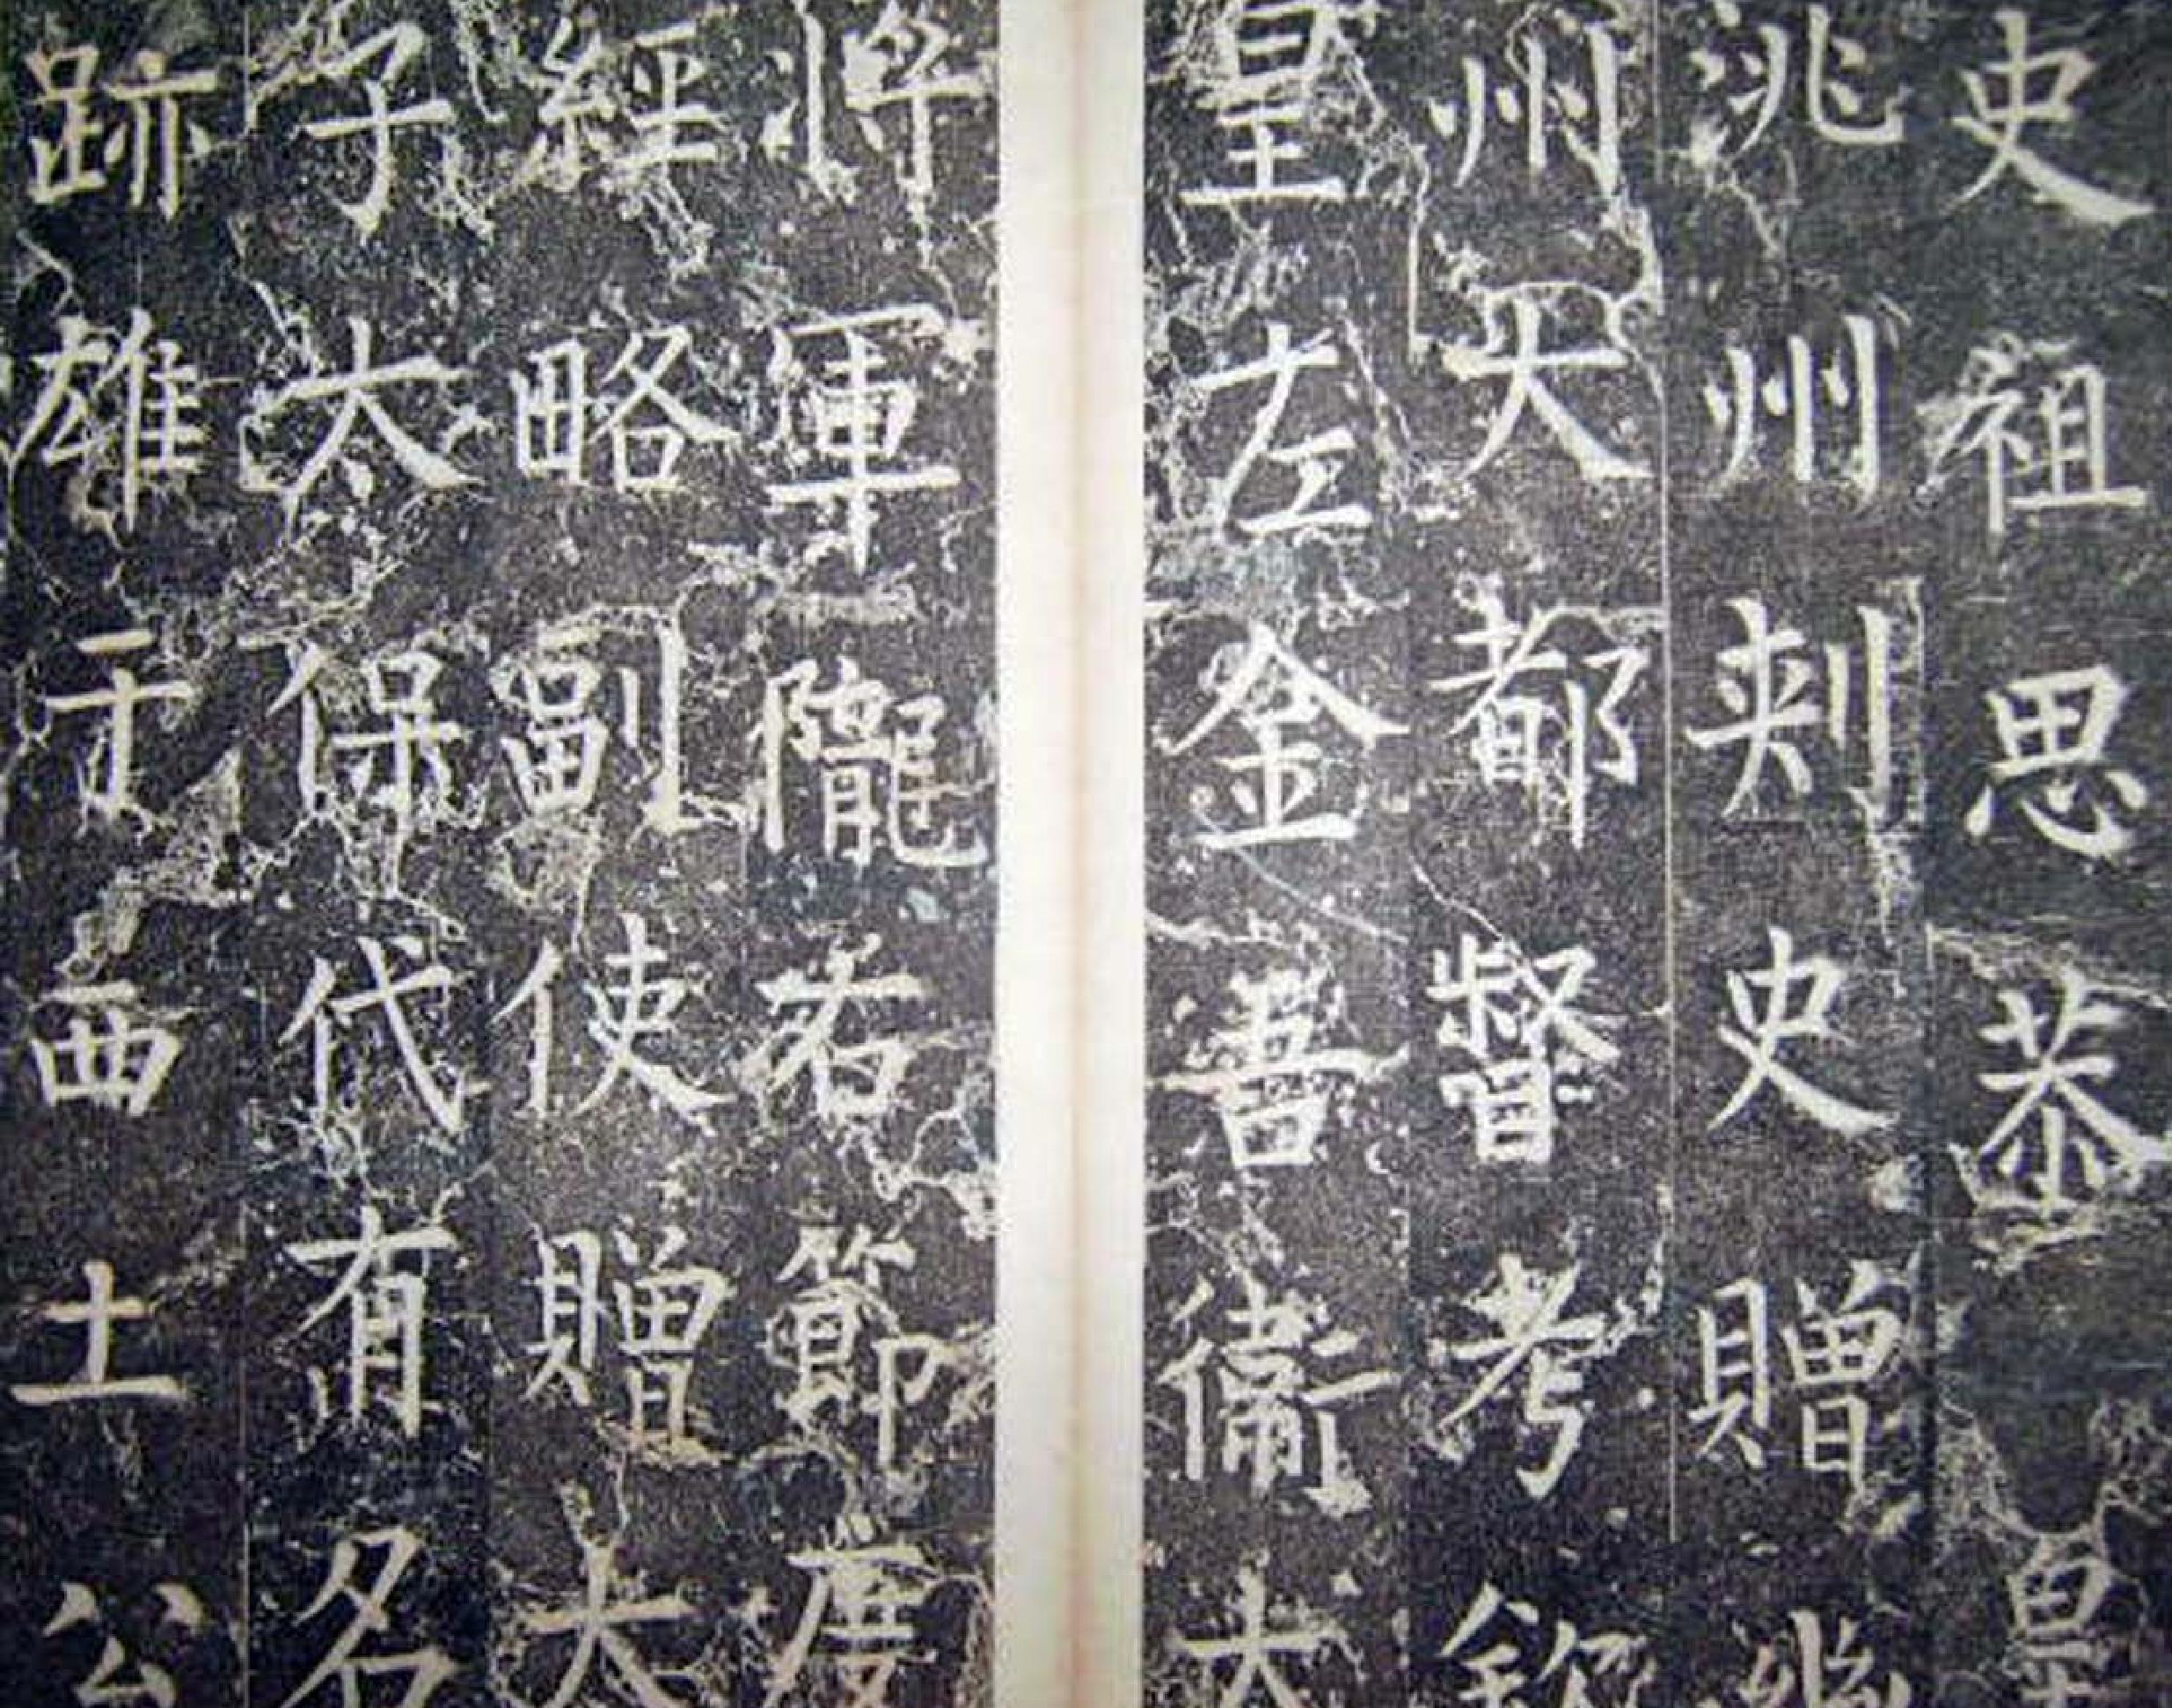 史祖思恭皇
洮州刺史贈
州大都督考
皇左金吾衛大
將軍隴右節度
經略副使贈大
子太保代有名
跡雄于西土公